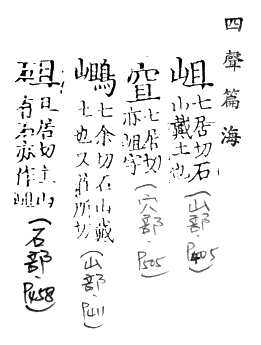 四聲篇海
岨 七居切石山戴土也 (山部.P405)
七居切亦岨字 (穴部.P505)
七余切石山戴土也又莊所切 (山部.P411)
砠 且居切土山有石亦作岨 (石部.P458)